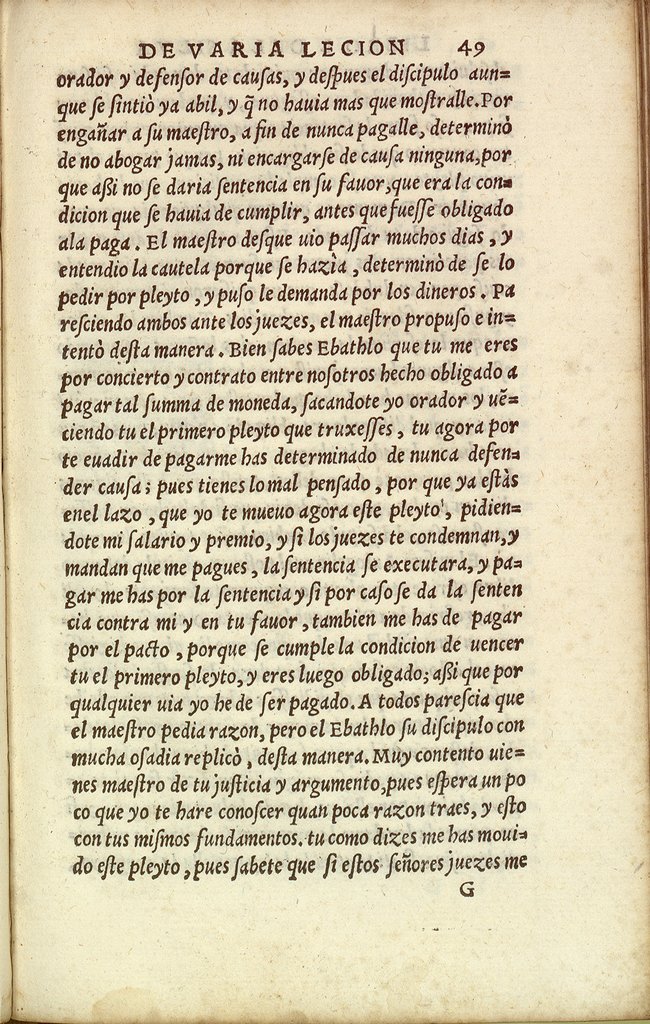 DE VARIA LECION 49
orador y defenſor de cauſas, y deſpues el diſcipulo aun=
que ſe ſintiò ya abil, y q̃ no hauia mas que moſtralle. Por
engañar a ſu maeſtro, a fin de nunca pagalle, determinò
de no abogar jamas, ni encargarſe de cauſa ninguna, por
que aßi no ſe daria ſentencia en ſu fauor, que era la con=
dicion que ſe hauia de cumplir, antes que fueſſe obligado
ala paga. El maeſtro deſque uio paſſar muchos dias, y
entendio la cautela porque ſe hazìa, determinò de ſe lo
pedir por pleyto, y puſo le demanda por los dineros. Pa
reſciendo ambos ante los juezes, el maeſtro propuſo e in=
tentò deſta manera. Bien ſabes Ebathlo que tu me eres
por concierto y contrato entre noſotros hecho obligado a
pagar tal ſumma de moneda, ſacandote yo orador y uẽ=
ciendo tu el primero pleyto que truxeſſes, tu agora por
te euadir de pagarme has determinado de nunca defen=
der cauſa; pues tienes lo mal penſado, por que ya eſtàs
enel lazo, que yo te mueuo agora eſte pleyto, pidien=
dote mi ſalario y premio, y ſi los juezes te condemnan, y
mandan que me pagues, la ſentencia ſe executara, y pa=
gar me has por la ſentencia y ſi por caſo ſe da la ſenten
cia contra mi y en tu fauor, tambien me has de pagar
por el pacto, porque ſe cumple la condicion de uencer
tu el primero pleyto, y eres luego obligado; aßi que por
qualquier uia yo he de ſer pagado. A todos pareſcia que
el maeſtro pedia razon, pero el Ebathlo ſu diſcipulo con
mucha oſadia replicò, deſta manera. Muy contento uie=
nes maeſtro de tu juſticia y argumento, pues eſpera un po
co que yo te hare conoſcer quan poca razon traes, y eſto
con tus miſmos fundamentos. tu como dizes me has moui=
do eſte pleyto, pues ſabete que ſi eſtos ſeñores juezes me
G